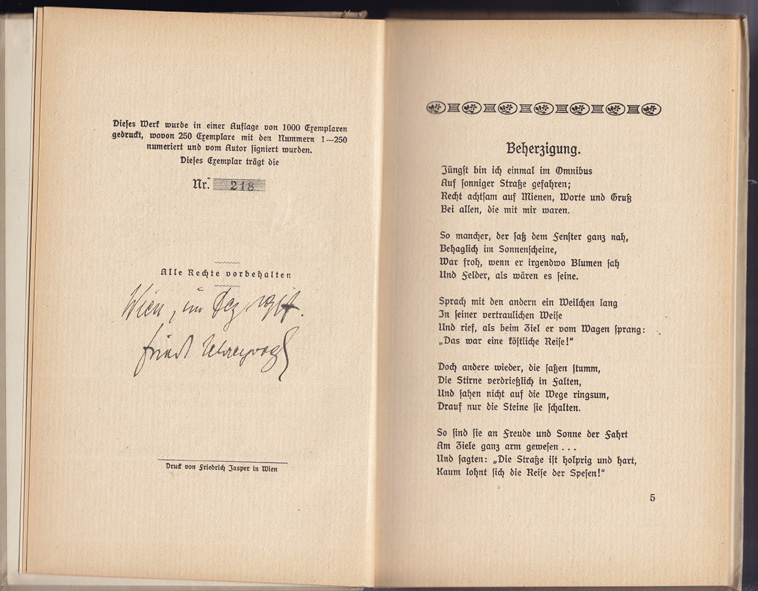 Dieses Werk wurde in einer Auflage von 1000 Exemplaren
gedruckt, wovon 250 Exemplare mit den Nummern 1—250
numeriert und vom Autor signiert wurden.
Dieses Exemplar trägt die
Nr. 218
Alle Rechte vorbehalten
Wien, im Dez.
Druck von Friedrich Jasper in Wien
Beherzigung.
Jüngst bin ich einmal im Omnibus
Auf sonniger Straße gefahren;
Recht achtsam auf Mienen, Worte und Gruß
Bei allen, die mit mir waren.
So mancher, der saß dem Fenster ganz nah,
Behaglich im Sonnenscheine,
War froh, wenn er irgendwo Blumen sah
Und Felder, als wären es seine.
Sprach mit den andern ein Weilchen lang
In seiner vertraulichen Weise
Und rief, als beim Ziel er vom Wagen sprang:
„Das war eine köstliche Reise!"
Doch andere wieder, die saßen stumm,
Die Stirne verdrießlich in Falten,
Und sahen nicht auf die Wege ringsum,
Drauf nur die Steine sie schalten.
So sind sie an Freude und Sonne der Fahrt
Am Ziele ganz arm gewesen . . .
Und sagten: „Die Straße ist holprig und hart,
Kaum lohnt sich die Reise der Spesen!"
5